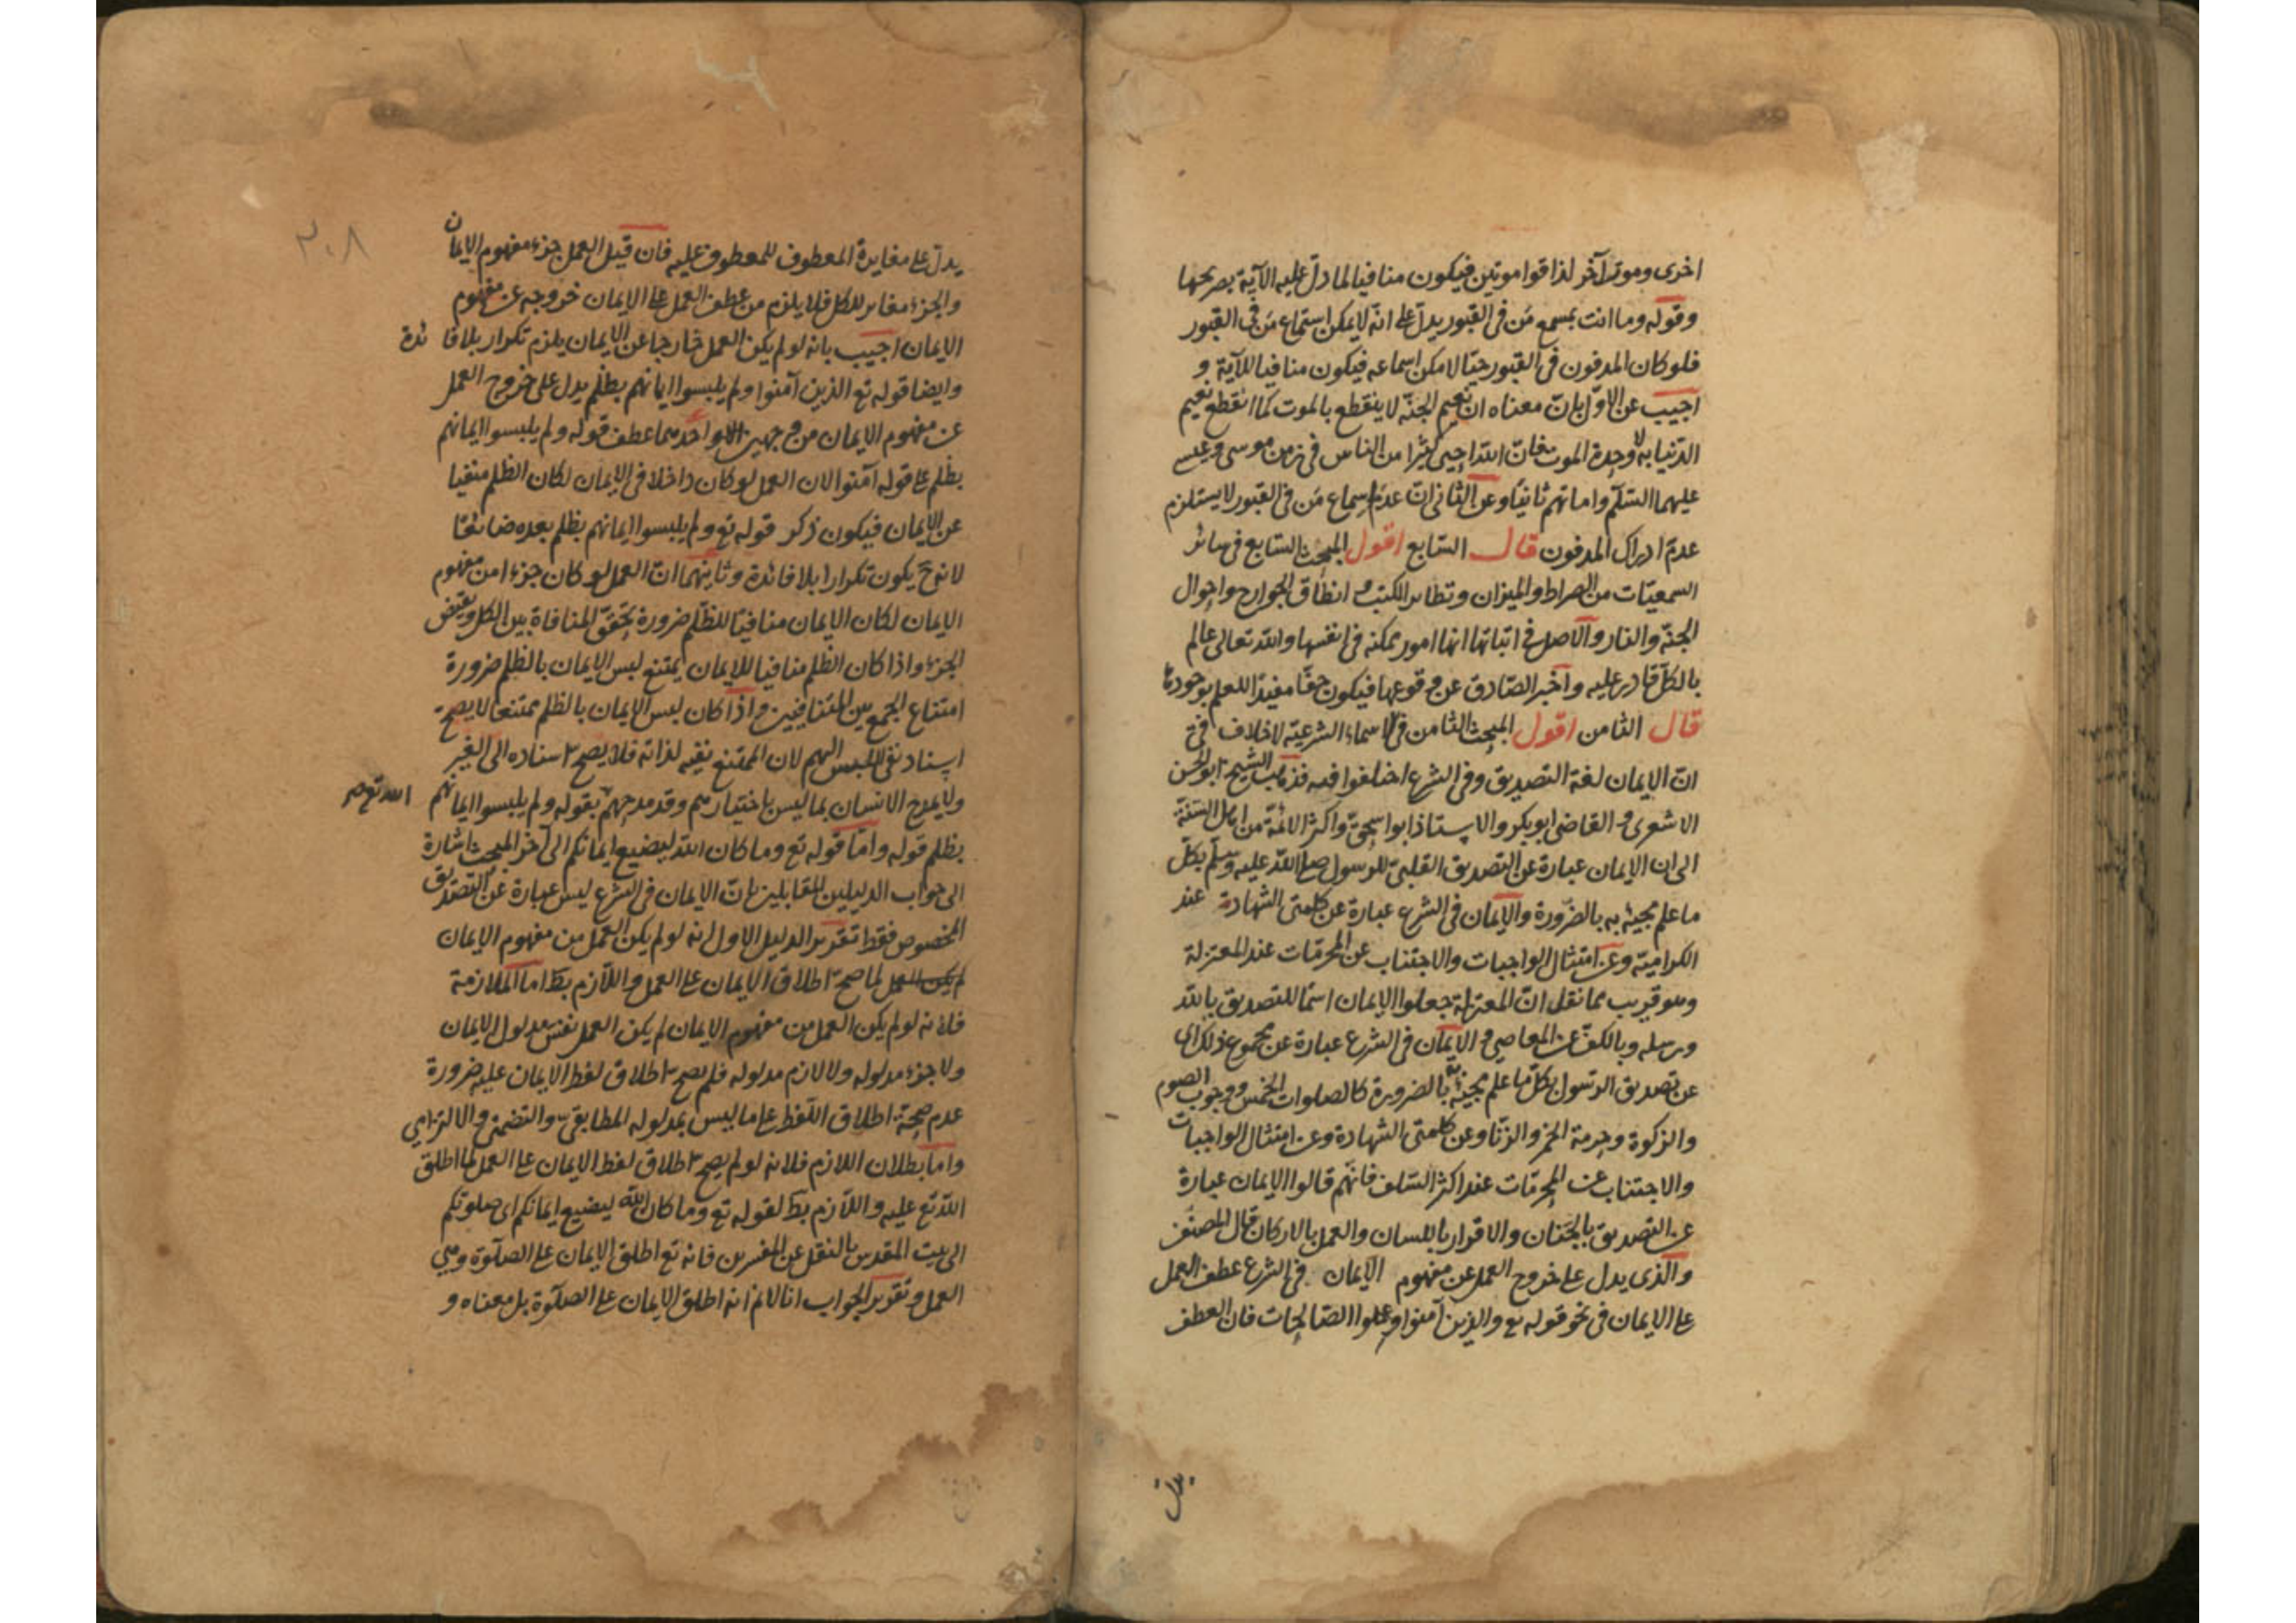 اخرى وموتا آخر لذاقوا موتين فيكون منافيا لما دل عليه الآية بصريحها
وقوله وما انت بمسمع من فى القبور يدل على انه لا يمكن استماع من فى القبور
فلو كان المدفون فى القبور حيّا لامكن اسماعه فيكون منافيا للآية و
اجيب عن الاوّل بانّ معناه ان نعيم الجنّة لا ينقطع بالموت كما انقطع نعيم
الدّنيا به لا وحدة الموت فانّ اللّه احيى كثيرا من الناس فى زمن موسى وعيسى
عليهما السّلام واماتهم ثانيًا وعن الثانى انّ عدم اسماع من فى القبور لا يستلزم
عدم ادراك المدفون قال السّابع اقول المبحث السّابع فى سائر
السمعيّات من الصراط والميزان وتطاير الكتب و انطاق الجوارح واحوال
الجنّة والنار والاصل فى اثباتها انها امور ممكنه فى انفسها واللّه تعالى عالم
بالكلّ قادر عليه واخبر الصّادق عن وقوعها فيكون حقّا مفيدًا للعلم بوجودها
قال الثامن اقول المبحث الثامن فى الاسماء الشرعيّة لا خلاف فى
انّ الايمان لغة التصديق وفى الشرع اختلفوا فيه فذهب الشيخ ابو الحسن
الاشعرى و القاضى ابو بكر والاستاذ ابو اسحق واكثر الائمّة من اهل السّنّة
الى ان الايمان عبارة عن التصديق القلبىّ للرسول صلى اللّه عليه وسلّم بكلّ
ما علم مجيئه به بالضّرورة والايمان فى الشرع عبارة عن كلمتى الشهادة عند
الكراميّة وعن امتثال الواجبات والاجتناب عن المحرمّات عند المعتزلة
وهو قريب مما نقل انّ المعتزلة جعلوا الايمان اسمًا للتصديق باللّه
ورسله وبالكفّ عن المعاصى و الايمان فى الشرع عبارة عن مجموع ذلك اى
عن تصديق الرسول بكلّ ما علم مجيئه به بالضرورة كالصلوات الخمس ووجوب الصوم
والزكوة وحرمة الخمر والزنا وعن كلمتى الشهادة وعن امتثال الواجبات
والاجتناب عن المحرمّات عند اكثر السّلف فانّهم قالوا الايمان عبارة
عن التصديق بالجنان والاقرار باللسان والعمل بالاركان قال المصنّف
والّذى يدل على خروج العمل عن مفهوم الايمان فى الشرع عطف العمل
على الايمان فى نحو قوله تع والذين آمنوا وعملوا الصّالحات فان العطف
يدل
٢٠٨
يدلّ على مغايرة المعطوف للمعطوف عليه فان قيل العمل جزء مفهوم الايمان
والجزء مغاير للكل فلا يلزم من عطف العمل على الايمان خروجه عن مفهوم
الايمان اجيب بانه لو لم يكن العمل خارجا عن الايمان يلزم تكرار بلا فائدة
وايضا قوله تع الذين آمنوا ولم يلبسوا ايمانهم بظلم يدل على خروج العمل
عن مفهوم الايمان من وجهين احدهما عطف قوله ولم يلبسوا ايمانهم
بظلم على قوله آمنوا لان العمل لو كان داخلا فى الايمان لكان الظلم منفيا
عن الايمان فيكون ذكر قوله تع ولم يلبسوا ايمانهم بظلم بعده ضائعًا
لانه ح يكون تكرارا بلا فائدة وثانيهما انّ العمل لو كان جزءا من مفهوم
الايمان لكان الايمان منافيًا للظلم ضرورة تحقق المنافاة بين الكل ونقيض
الجزء واذا كان الظلم منافيا للايمان يمتنع لبس الايمان بالظلم ضرورة
امتناع الجمع بين المتنافيين واذا كان لبس الايمان بالظلم ممتنعا لا يصحّ
اسناد نفى اللبس اليهم لان الممتنع نفيه لذاته فلا يصح اسناده الى الغير
ولا يمدح الانسان بما ليس باختيارهم وقد مدحهم بقوله ولم يلبسوا ايمانهم
الله تع صح
بظلم قوله وامّا قوله تع وما كان اللّه ليضيع ايمانكم الى آخر المبحث اشارة
الى جواب الدليلين للقايلين بانّ الايمان فى الشرع ليس عبارة عن التصديق
المخصوص فقط تقرير الدليل الاول انه لو لم يكن العمل من مفهوم الايمان
لم يكن العمل لما صحّ اطلاق الايمان على العمل واللّازم بط اما الملازمة
فلانه لو لم يكن العمل من مفهوم الايمان لم يكن العمل نفس مدلول الايمان
ولا جزء مدلوله ولا لازم مدلوله فلم يصح اطلاق لفظ الايمان عليه ضرورة
عدم صحّة اطلاق اللّفظ على ما ليس بمدلوله المطابقى والتضمنى والالتزامى
واما بطلان اللازم فلانه لو لم يصح اطلاق لفظ الايمان على العمل لما اطلق
اللّه تع عليه واللّازم بط لقوله تع وما كان اللّه ليضيع ايمانكم اى صلوتكم
الى بيت المقدس بالنقل عن المفسرين فانه تع اطلق الايمان على الصّلوة وهى
العمل وتقرير الجواب انا لا نم انه اطلق الايمان على الصلوة بل معناه و